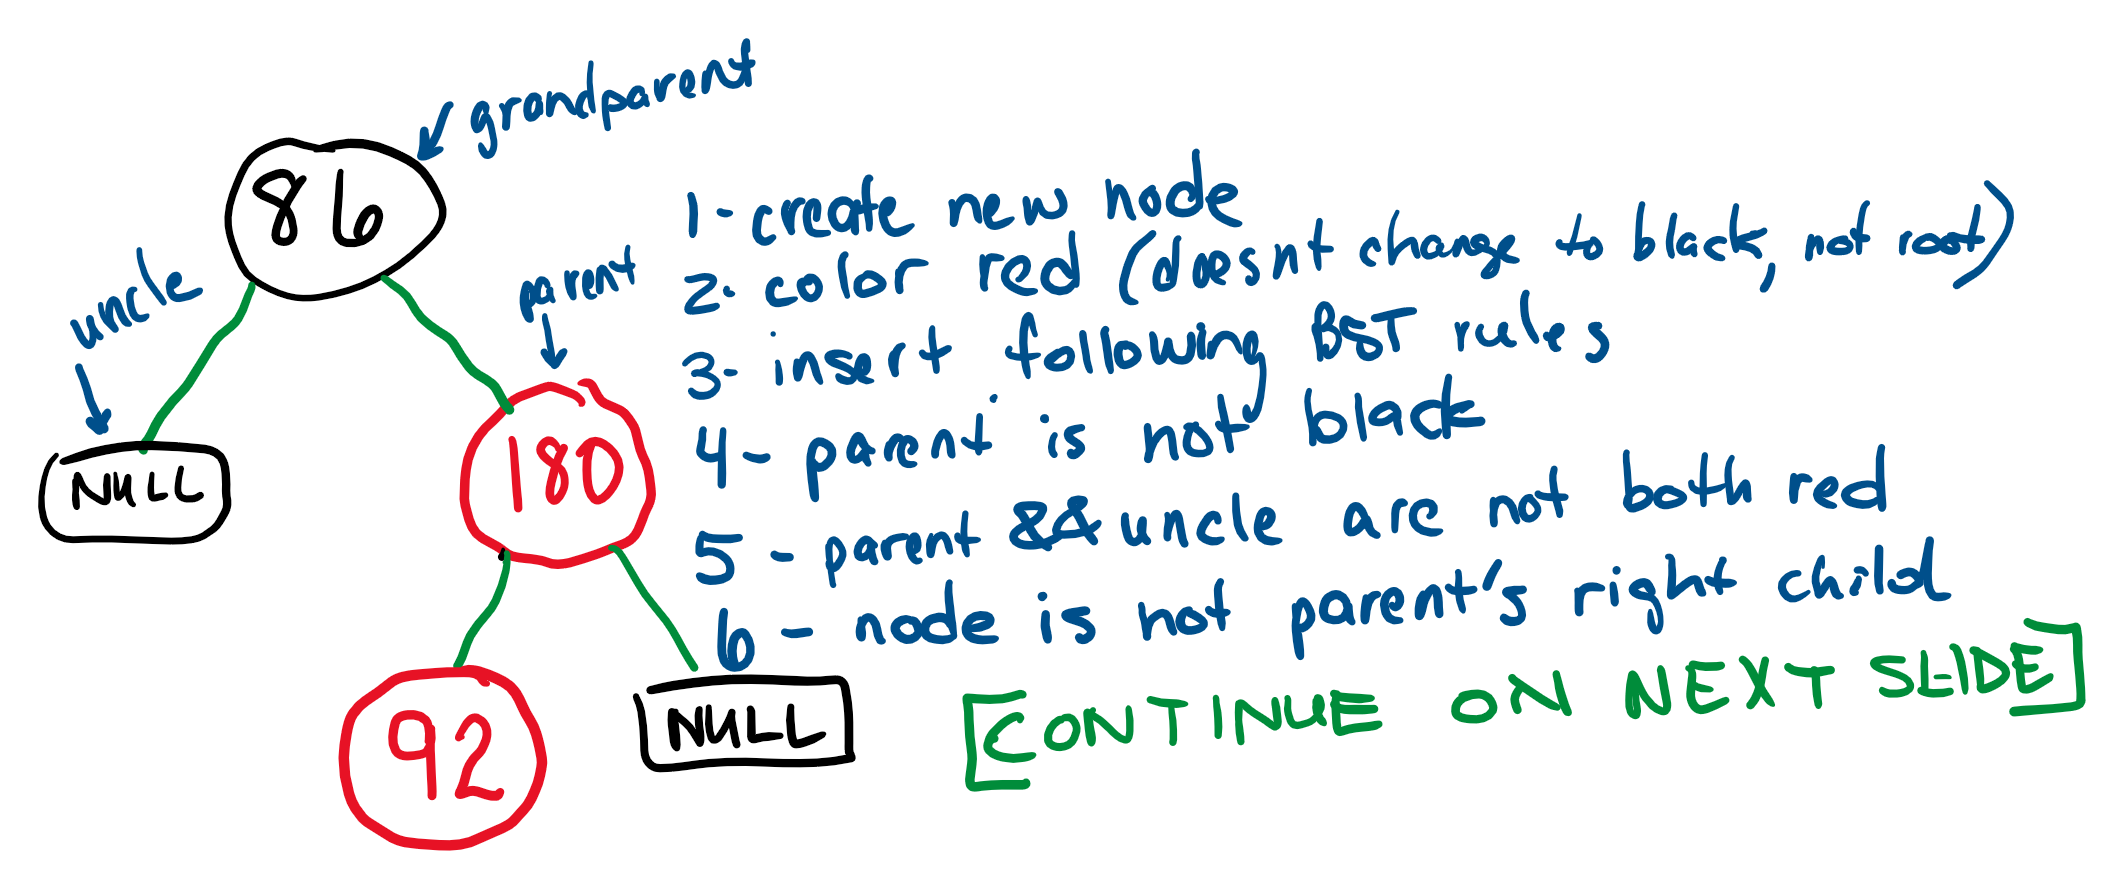 grandparent
86
uncle
parent
NULL
180
92
NULL
1- create new node
2- color red (doesnt change to black, not root)
3- insert following BST rules
4- parent is not black
5- parent && uncle are not both red
6- node is not parent's right child
[CONTINUE ON NEXT SLIDE]